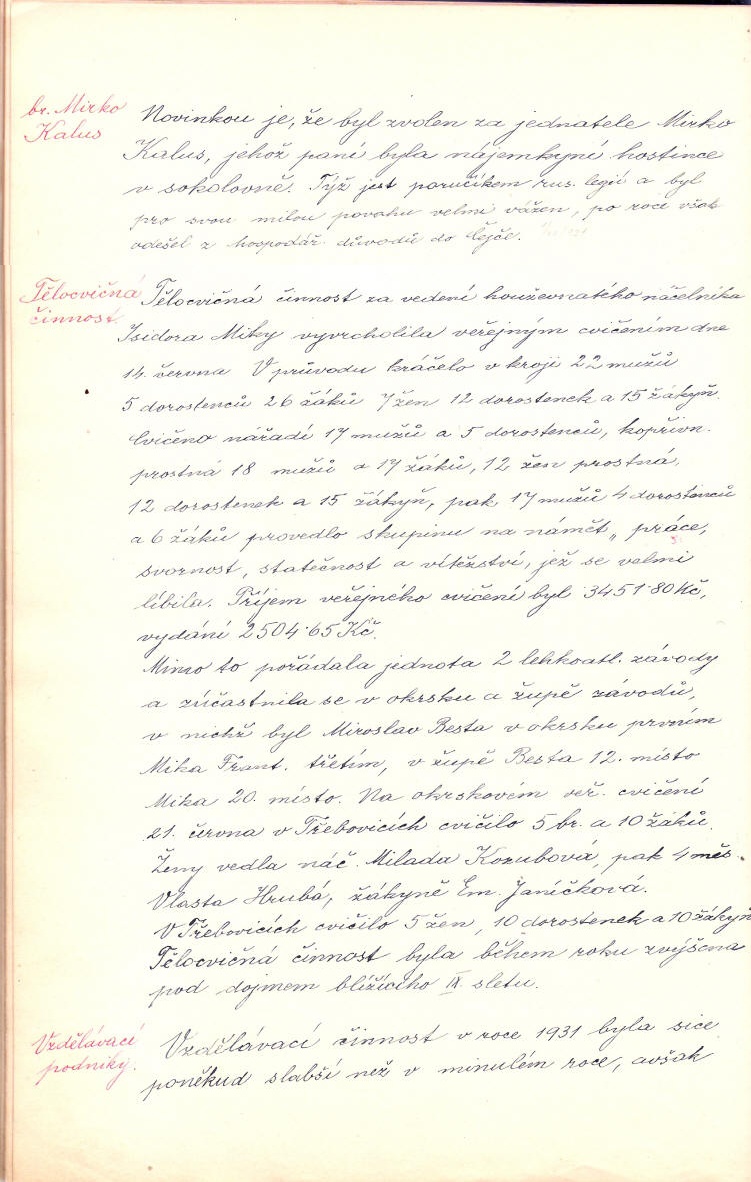 br. Mirko
Kalus
Novinkou je, že byl zvolen za jednatele Mirko
Kalus, jehož paní byla nájemkyní hostince
v sokolovně. Týž jest poručíkem rus. legií a byl
pro svou milou povahu velmi vážen, po roce však
odešel z hospodář. důvodů do Čejče.
Tělocvičná
činnost.
Tělocvičná činnost za vedení houževnatého náčelníka
Isidora Miky vyvrcholila veřejným cvičením dne
14. června V průvodu kráčelo v kroji 22 mužů
5 dorostenců 26 žáků 7 žen 12 dorostenek a 15 žákyň.
Cvičeno nářadí 17 mužů a 5 dorostenců, kopřivn.
prostná 18 mužů a 17 žáků, 12 žen prostná,
12 dorostenek a 15 žákyň, pak 17 mužů 4 dorostenců
a 6 žáků provedlo skupinu na námět „práce,
svornost, statečnost a vítězství, jež se velmi
líbila. Příjem veřejného cvičení byl 3451·80 Kč,
vydání 2504·65 Kč.
Mimo to pořádala jednota 2 lehkoatl. závody
a zúčastnila se v okrsku a župě závodů,
v nichž byl Miroslav Besta v okrsku prvním
Mika Frant. třetím, v župě Besta 12. místo
Mika 20. místo. Na okrskovém veř. cvičení
21. června v Třebovicích cvičilo 5 br. a 10 žáků.
Ženy vedla náč. Milada Kozubová, pak 4 měs.
Vlasta Hrubá, žákyně Em. Janíčková.
V Třebovicích cvičilo 5 žen, 10 dorostenek a 10 žákyň
Tělocvičná činnost byla během roku zvýšena
pod dojmem blížícího IX. sletu.
Vzdělávací
podniky.
Vzdělávací činnost v roce 1931 byla sice
poněkud slabší než v minulém roce, avšak